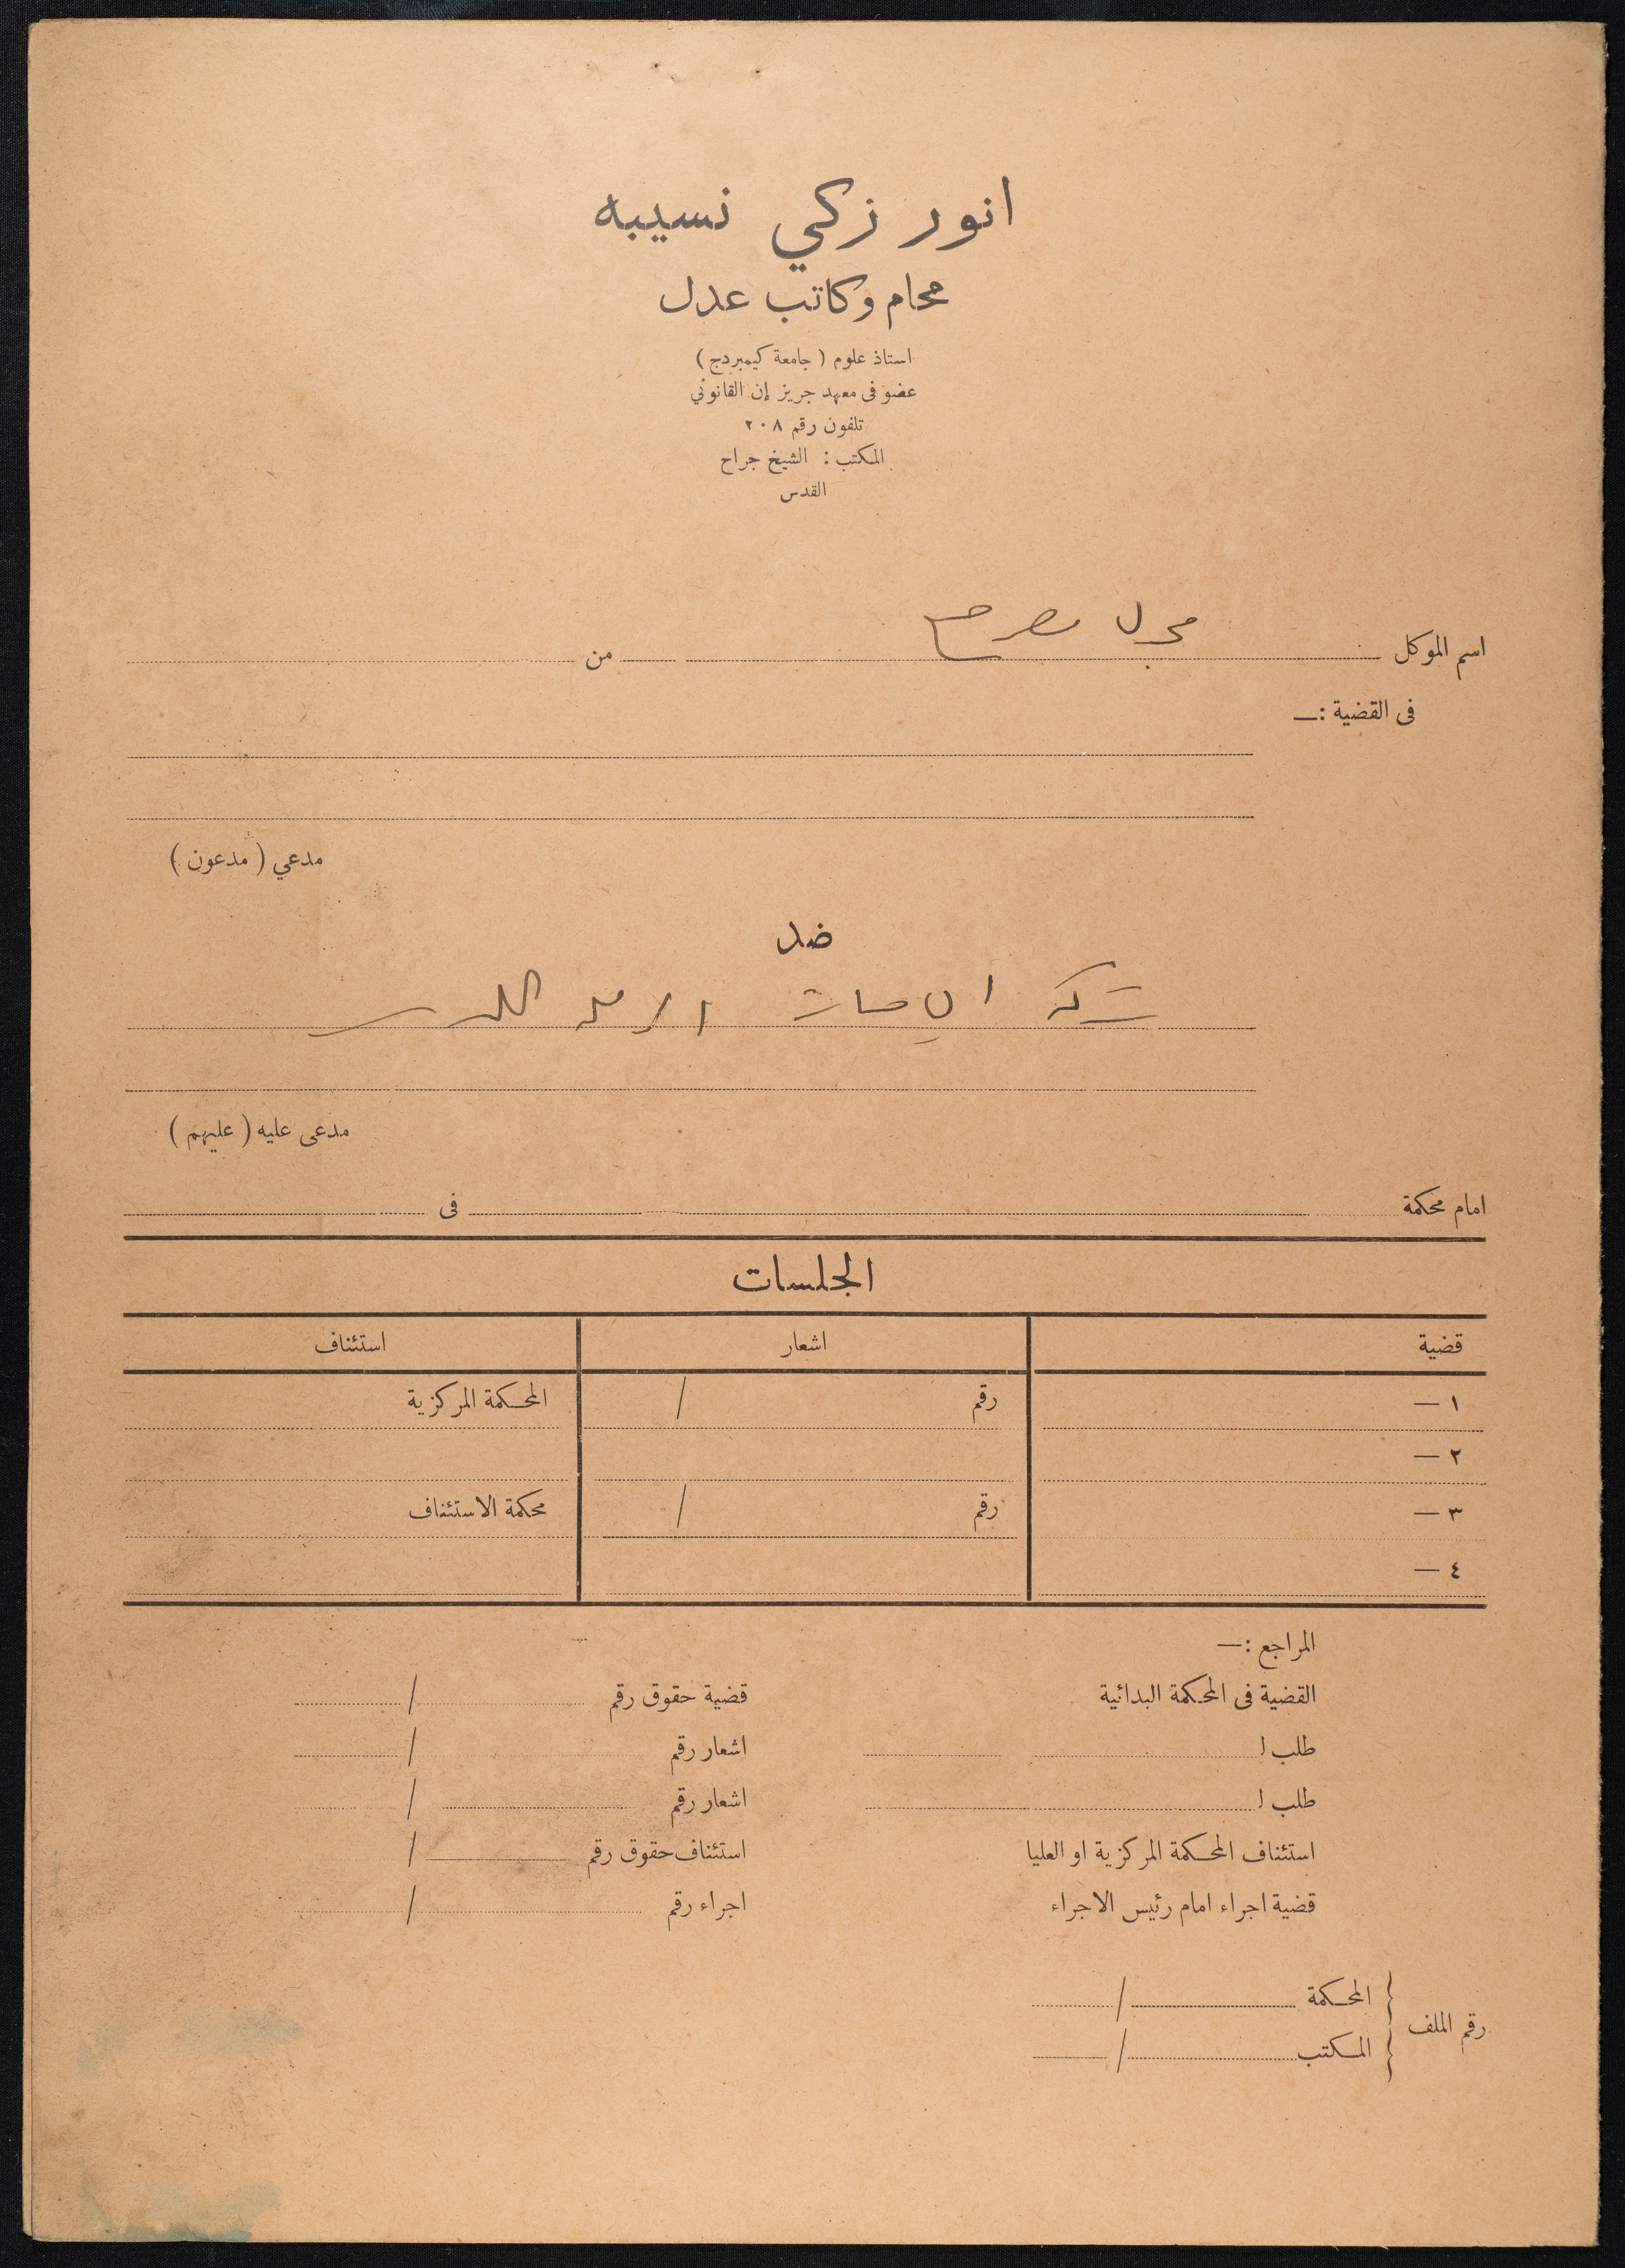 انور زكي نسيبه
محام وكاتب عدل
استاذ علوم ( جامعة كيمبردج )
عضو فى معهد جريز إن القانوني
تلفون رقم ٢٠٨
المكتب : الشيخ جراح
القدس
اسم الموكل من
فى القضية :—
مدعي ( مدعون )
ضد
شركة الباصات
مدعى عليه ( عليهم )
امام محكمة فى
الجلسات
قضية اشعار استئناف
١ — رقم / المحكمة المركزية
٢ —
٣ — رقم / محكمة الاستئناف
٤ —
المراجع :—
القضية فى المحكمة البدائية قضية حقوق رقم /
طلب ل اشعار رقم /
طلب ل اشعار رقم /
استئناف المحكمة المركزية او العليا استئناف حقوق رقم /
قضية اجراء امام رئيس الاجراء اجراء رقم /
رقم الملف
المحكمة /
المكتب /